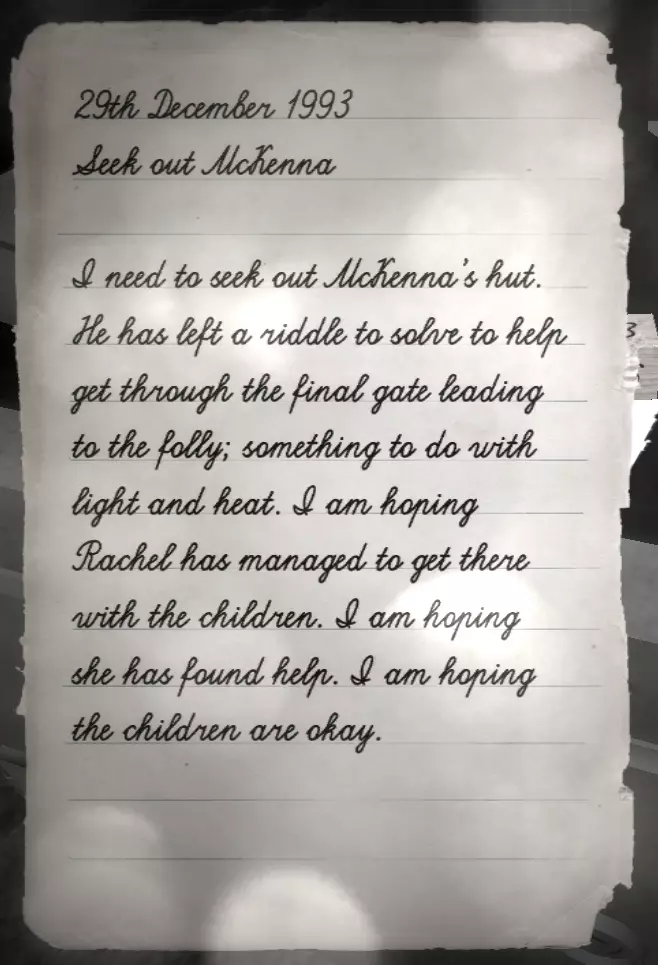 29th December 1993
Seek out McKenna
I need to seek out McKenna's hut.
He has left a riddle to solve to help
get through the final gate leading
to the folly; something to do with
light and heat. I am hoping
Rachel has managed to get there
with the children. I am hoping
she has found help. I am hoping
the children are okay.
3